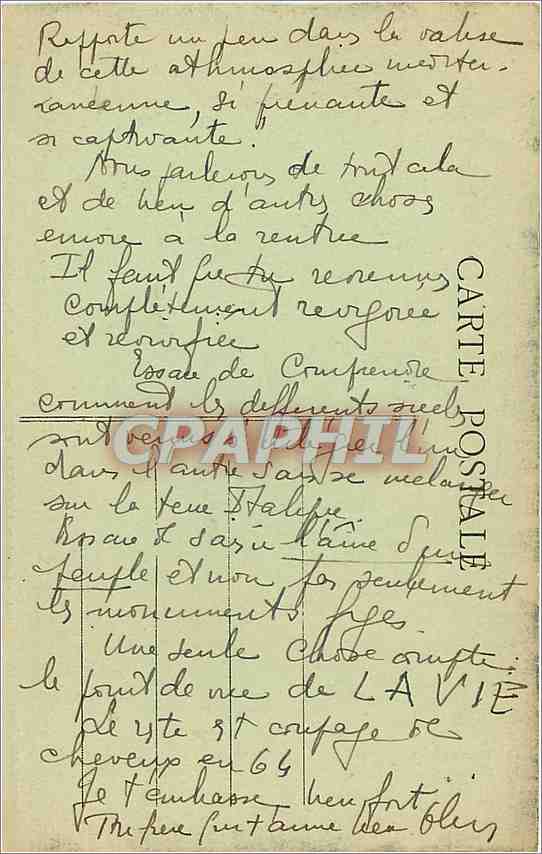 Rapporte un peu dans la valise
de cette athmosphère méditer-
ranéenne, si prenante et
si captivante.
Nous parlerons de tout cela
et de bien d'autres choses
encore à la rentrée
Il faut que tu reviennes
complètement revigorée
et revivifiée
Essaie de Comprendre
comment les différents siècles
sont venus s' l'un
dans l'autre sans se mélanger
sur la terre Italique
Essaie de saisir l'âme d'un
peuple et non pas seulement
les monuments figés
Une seule chose compte :
le point de vue de LA VIE
Le reste est coupage de
cheveux en 64
Je t'embrasse bien fort
Ton frère qui t'aime bien
CARTE POSTALE
CPAPHIL